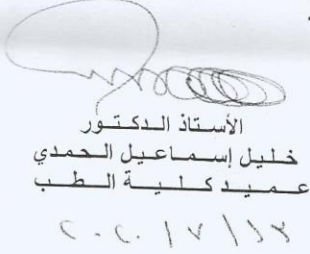 الأستاذ الدكتور
خليل إسماعيل الحمدي
عميد كلية الطب
٢٠٢٠/٧/١٣